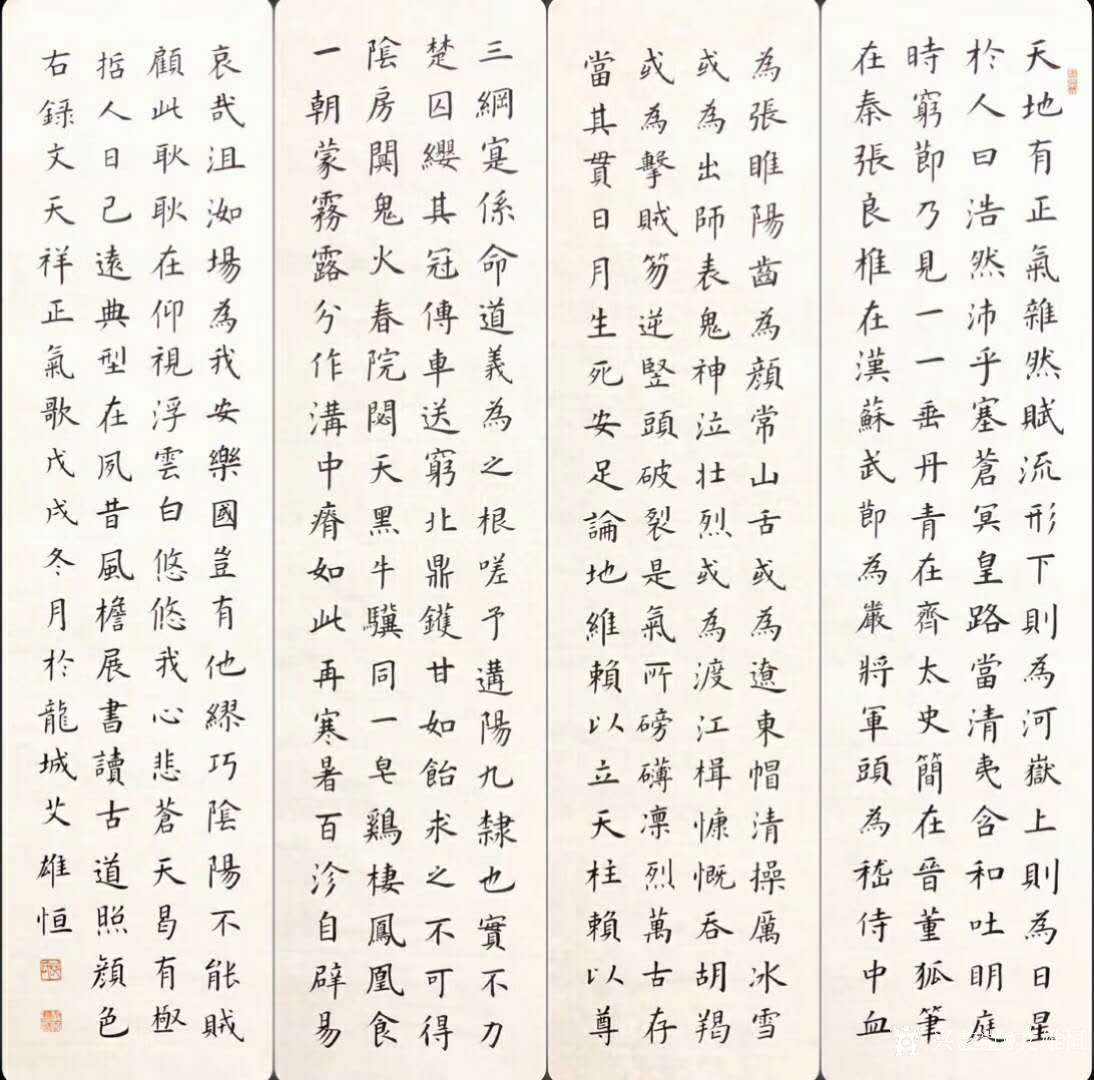 天地有正氣雜然賦流形下則為河嶽上則為日星
於人曰浩然沛乎塞蒼冥皇路當清夷含和吐明庭
時窮節乃見一一垂丹青在齊太史簡在晉董狐筆
在秦張良椎在漢蘇武節為嚴將軍頭為嵇侍中血
為張睢陽齒為顏常山舌或為遼東帽清操厲冰雪
或為出師表鬼神泣壯烈或為渡江楫慷慨吞胡羯
或為擊賊笏逆豎頭破裂是氣所磅礴凜烈萬古存
當其貫日月生死安足論地維賴以立天柱賴以尊
三綱寔係命道義為之根嗟予遘陽九隸也實不力
楚囚纓其冠傳車送窮北鼎鑊甘如飴求之不可得
陰房闃鬼火春院閟天黑牛驥同一皂鷄棲鳳凰食
一朝蒙霧露分作溝中瘠如此再寒暑百沴自辟易
哀哉沮洳場為我安樂國豈有他繆巧陰陽不能賊
顧此耿耿在仰視浮雲白悠悠我心悲蒼天曷有極
哲人日已遠典型在夙昔風檐展書讀古道照顏色
右錄文天祥正氣歌戊戌冬月於龍城艾雄恒